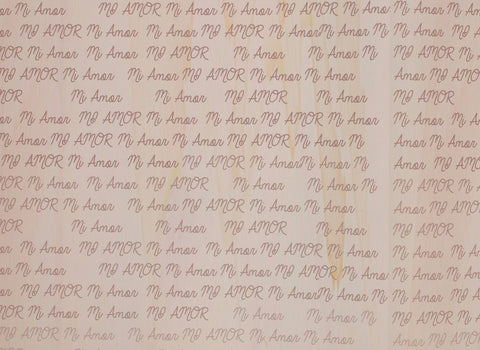 Mi Amor MI AMOR Mi Amor Mi Amor MI AMOR Mi Amor
MI AMOR Mi Amor MI AMOR Mi Amor MI AMOR Mi Amor MI AMOR Mi
MI AMOR Mi Amor MI AMOR Mi Amor Mi Amor Mi MI AMOR Mi Amor
MI AMOR Mi Amor MI AMOR Mi Amor MI AMOR Mi Amor Amor MI AMOR
Mi Amor Mi Amor MI AMOR Mi Amor MI AMOR
Mi Amor MI AMOR Mi Amor MI AMOR Mi Amor Mi Amor MI
MI AMOR Mi Amor MI AMOR Mi Amor MI AMOR Mi Amor MI AMOR Mi
MI AMOR Mi Amor MI AMOR Mi Amor MI AMOR Mi Amor Mi Amor MI AMOR Mi
MI AMOR Mi Amor MI AMOR Mi Amor Mi Amor MI AMOR Mi Amor
MI AMOR Mi Amor MI AMOR Mi Amor MI AMOR Mi Amor Amor MI AMOR
Mi Amor MI AMOR Mi Amor MI AMOR
Mi Amor MI AMOR Mi Amor MI AMOR Mi Amor MI AMOR Mi Amor Mi
Mi Amor MI AMOR Mi Amor MI AMOR Mi Amor MI AMOR Mi Mi Amor
MI AMOR Mi Amor MI AMOR Mi Amor MI AMOR Mi Amor Mi Amor MI AMOR Mi Amor MI
MI AMOR Mi Amor MI AMOR Mi Amor Mi Amor Mi MI AMOR Mi Amor
MI AMOR Mi Amor MI AMOR Mi Amor MI AMOR Mi Amor Amor MI AMOR